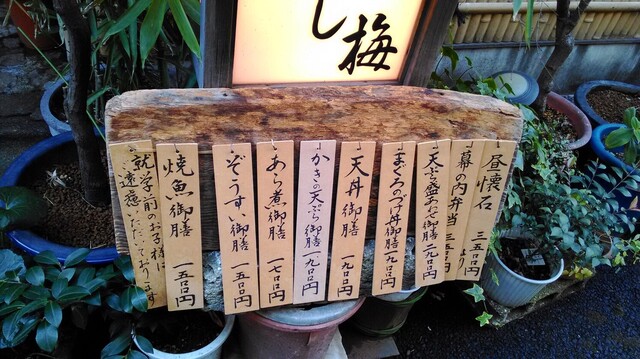 し梅
昼懐石 三五〇〇円
幕の内弁当 三五〇〇円より
天ぷら盛あわせ御膳 一九〇〇円
まぐろのづけ丼御膳 一九〇〇円
天丼御膳 一九〇〇円
かきの天ぷら御膳 一九〇〇円
あら煮御膳 一七〇〇円
ぞうすい御膳 一五〇〇円
焼魚御膳 一五〇〇円
就学前のお子様は
遠慮いただいております